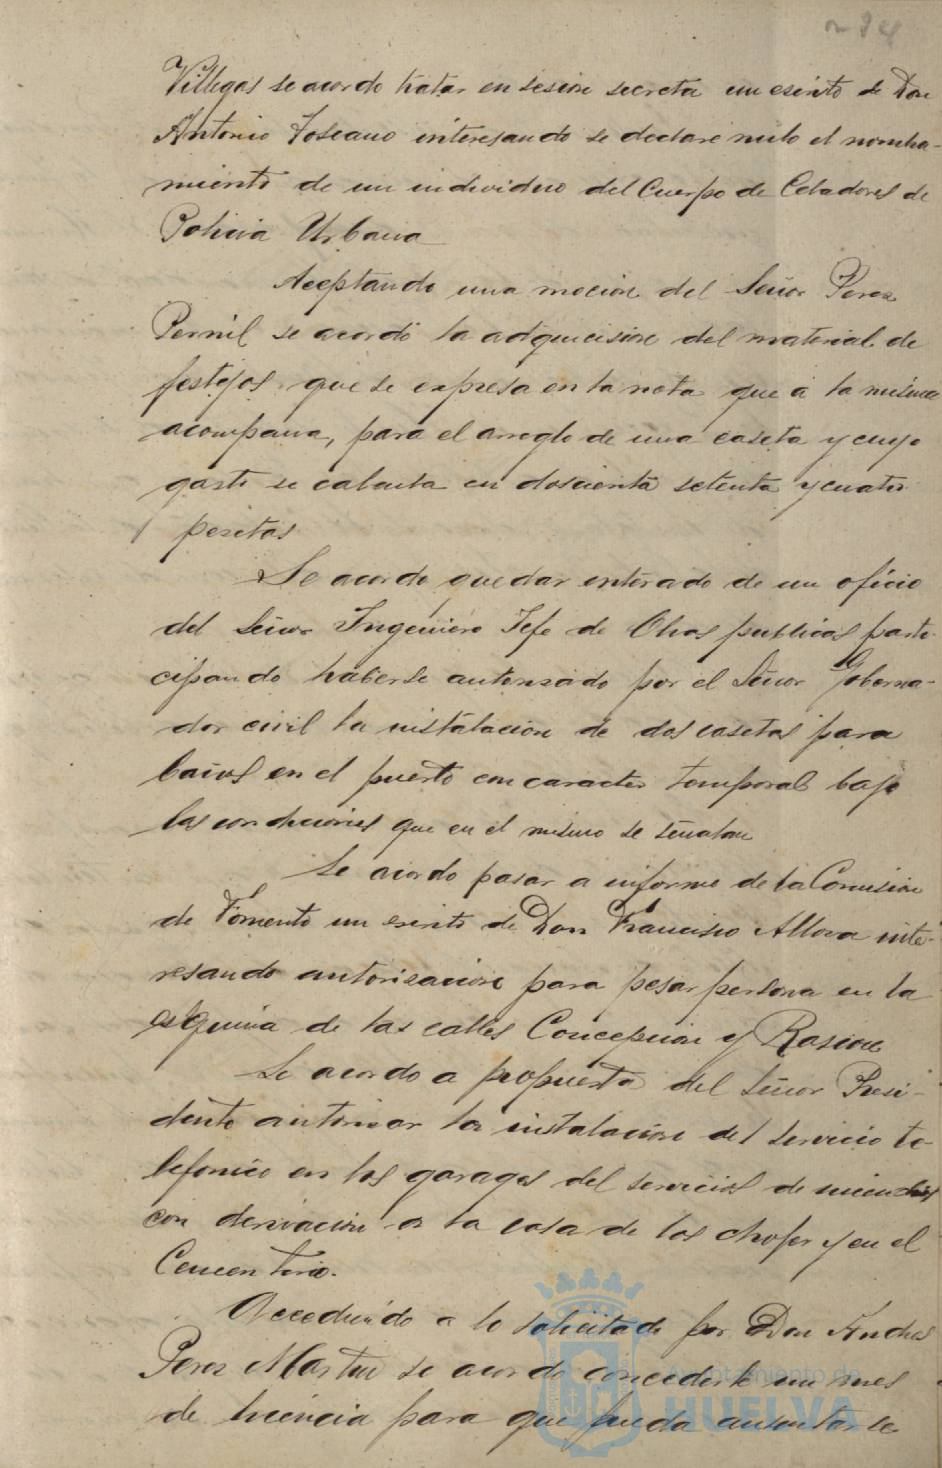 Villegas se acordo tratar en sesion secreta un escrito de Don
Antonio Toscano interesando se declare nulo el nombra-
miento de un individuo del Cuerpo de Celadores de
Policia Urbana
Aceptando una mocion del Señor Perez
Pernil se acordó la adquicision del material de
festejos que se expresa en la nota que a la misma
acompaña, para el arreglo de una caseta y cuyo
gasto se calcula en doscienta setenta y cuatro
pesetas
Se acordo quedar enterado de un oficio
del Señor Ingeniero Jefe de Obras publicas parti-
cipando haberse autorizado por el Señor Goberna-
dor civil la instalacion de dos casetas para
baños en el puerto con caracter temporal bajo
las condiciones que en el mismo se señalan
Se acordo pasar a informe de la Comision
de Fomento un escrito de Don Francisco inte-
resando autorizacion para pesar persona en la
esquina de las calles Concepcion y Rascon
Se acordo a propuesta del Señor Presi-
dente autorizar la instalacion del servicio te-
lefonico en los garages del servicios de incendios
con derivacion a la casa de los chofer y en el
Cementerio.
Accediendo a lo solicitado por Don Andres
Perez Martin se acordo concederle un mes
de licencia para que pueda ausentarse
Ayuntamiento de
HUELVA